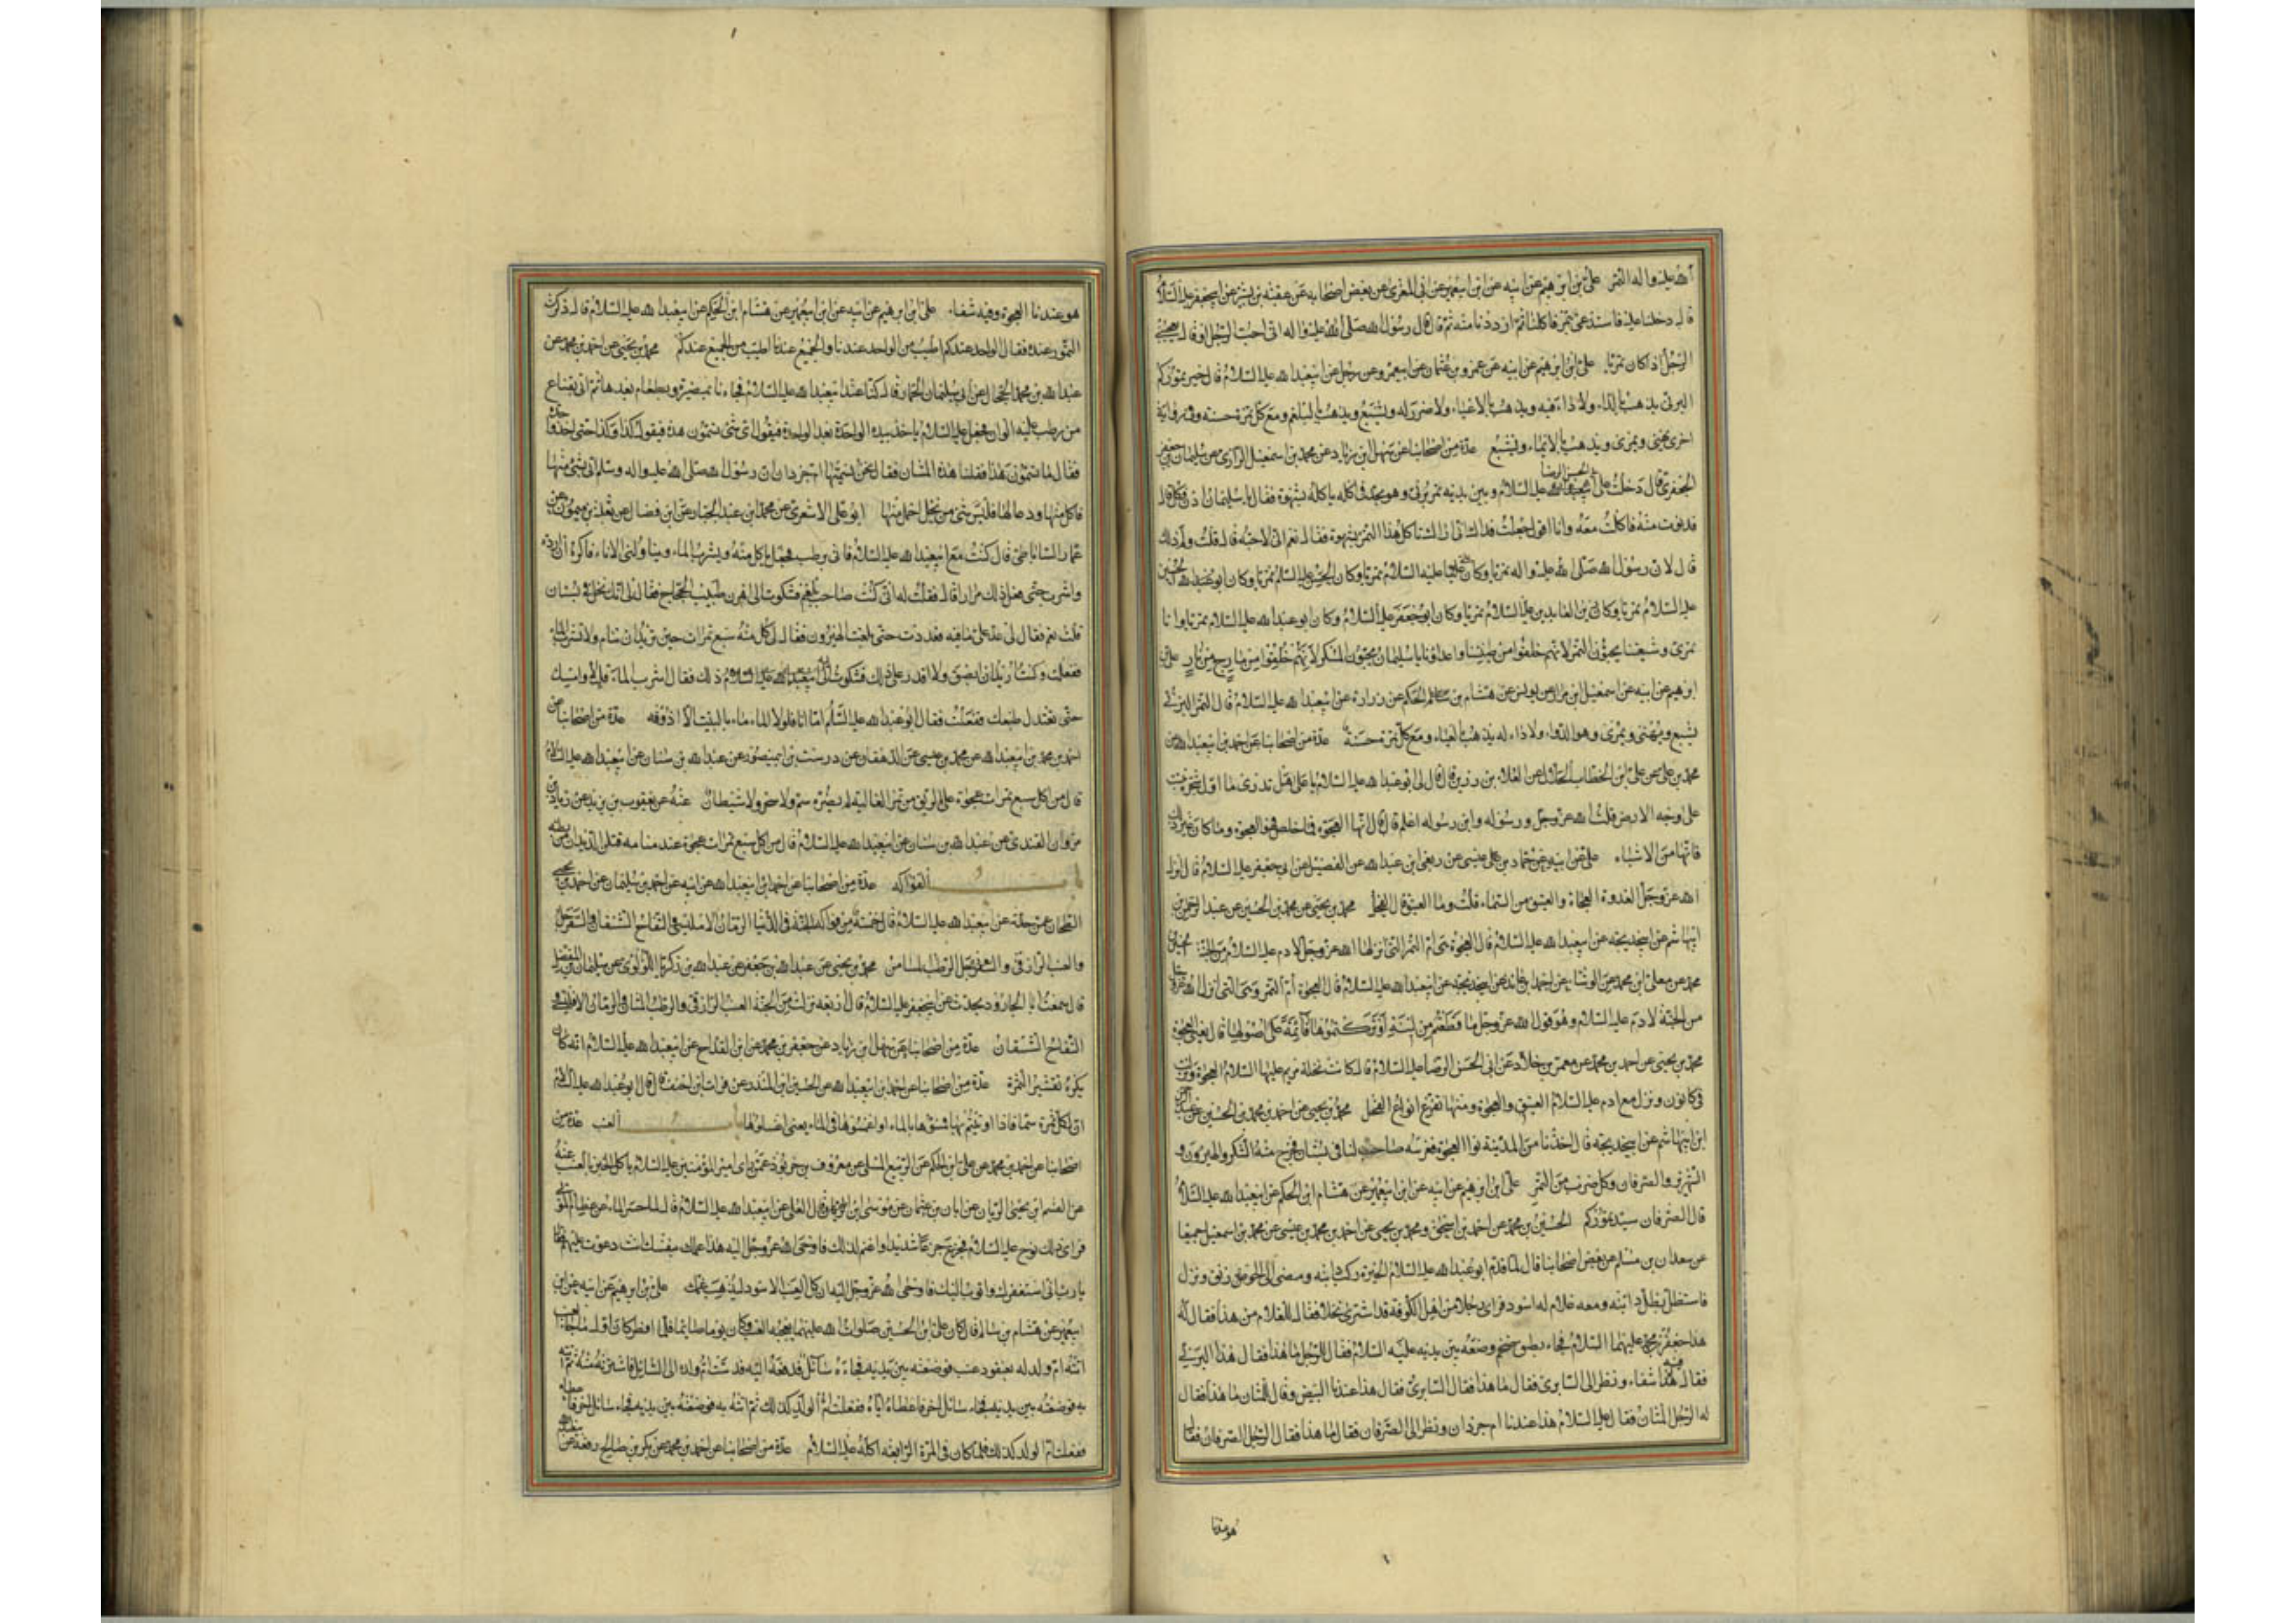 الله عليه واله التمر علي بن ابرهيم عن ابيه عن ابن ابي عمير عن ابي المغرى عن بعض اصحابه عن عقبة بن بشير عن ابي جعفر عليه السلام
قال دخلنا عليه فاستدعى بتمر فاكلنا ثم ازددنا منه ثم قال قال رسول الله صلى الله عليه واله اني احب الرجل او قال يعجبني
الرجل اذا كان تمريا علي بن ابرهيم عن ابيه عن عمرو بن عثمان عن ابي عمرو عن رجل عن ابي عبد الله عليه السلام قال خير تموركم
البرني يذهب بالداء ولا داء فيه ويذهب بالاعياء ولا ضرر له ويشبع ويذهب بالبلغم ومع كل تمرة حسنة وفي رواية
اخرى يهني ويمري ويذهب بالاعياء ويشبع عدة من اصحابنا عن سهل بن زياد عن محمد بن اسمعيل الرازي عن سليمان بن جعفر
الجعفري قال دخلت على ابي الحسن الرضا عليه السلام وبين يديه تمر برني وهو مجد في اكله ياكله بشهوة فقال يا سليمان ادن فكل قال
فدنوت منه فاكلت معه وانا اقول جعلت فداك اني اراك تاكل هذا التمر بشهوة فقال نعم اني لاحبه قال قلت ولم ذاك
قال لان رسول الله صلى الله عليه واله تمريا وكان علي عليه السلام تمريا وكان الحسن عليه السلم تمريا وكان ابو عبد الله الحسين
عليه السلام تمريا وكان زين العابدين عليه السلام تمريا وكان ابو جعفر عليه السلام وكان ابو عبد الله عليه السلام تمريا وانا
تمري وشيعتنا يحبون التمر لانهم خلقوا من طينتنا واعداؤنا يا سليمان يحبون المسكر لانهم خلقوا من مارج من نار علي بن
ابرهيم عن ابيه عن اسمعيل بن مرار عن يونس عن هشام بن الحكم عن زرارة عن ابي عبد الله عليه السلام قال التمر البرني
يشبع ويهني ويمري وهو الدواء ولا داء له يذهب بالعياء ومع كل تمرة حسنة عدة من اصحابنا عن احمد بن ابي عبد الله عن
محمد بن علي عن علي بن الخطاب الحلال عن العلاء بن رزين قال قال لي ابو عبد الله عليه السلام يا علاء هل تدري ما اول شجرة نبتت
على وجه الارض قلت الله عز وجل ورسوله وابن رسوله اعلم قال قال انها العجوة فما خلص فهو العجوة وما كان غير ذلك
فانها من الاشباه علي عن ابيه عن حماد بن عيسى عن ربعي بن عبد الله عن الفضيل عن ابي جعفر عليه السلام قال انزل
الله عز وجل العجوة والعتيق من السماء قلت وما العتيق قال الفحل محمد بن يحيى عن محمد بن الحسين عن عبد الرحمن بن
ابي هاشم عن ابي خديجة عن ابي عبد الله عليه السلام قال العجوة هي ام التمر التي انزلها الله عز وجل لادم عليه السلام من الجنة الحسين بن
محمد عن معلى بن محمد عن الوشاء عن احمد بن عائذ عن ابي خديجة عن ابي عبد الله عليه السلام قال العجوة ام التمر وهي التي انزل الله عز وجل
من الجنة لادم عليه السلام وهو قول الله عز وجل ما قطعتم من لينة او تركتموها قائمة على اصولها قال يعني العجوة
محمد بن يحيى عن احمد بن محمد عن معمر بن خلاد عن ابي الحسن الرضا عليه السلام قال كانت نخلة مريم عليها السلام العجوة ونزلت
في كانون ونزل مع ادم عليه السلام العتيق والعجوة ومنها تفرع انواع النخل محمد بن يحيى عن احمد بن محمد بن الحسين عن عبد الرحمن
ابن ابي هاشم عن ابي خديجة قال اخذنا من المدينة نوا العجوة فغرسه صاحب لنا في بستان فخرج منه السكر والهيرون و
الشهريز والصرفان وكل ضرب من التمر علي بن ابرهيم عن ابيه عن ابن ابي عمير عن هشام بن الحكم عن ابي عبد الله عليه السلام
قال الصرفان سيد تموركم الحسين بن محمد عن احمد بن اسحق ومحمد بن يحيى عن احمد بن محمد بن عيسى عن محمد بن اسمعيل جميعا
عن سعدان بن مسلم عن بعض اصحابنا قال لما قدم ابو عبد الله عليه السلام الحيرة ركب دابته ومضى الى الخورنق ونزل
فاستظل بظل دابته ومعه غلام له اسود فراى رجلا من اهل الكوفة قد اشترى نخلا فقال للغلام من هذا فقال له
هذا جعفر بن محمد عليهما السلام فجاء بطبق ضخم وضعه بين يديه عليه السلام فقال للرجل ما هذا فقال هذا البرني
فقال فيه شفاء ونظر الى السابري فقال ما هذا فقال السابري فقال هذا عندنا البيض وقال للمشان ما هذا فقال
له الرجل المشان فقال عليه السلام هذا عندنا ام جرذان ونظر الى الصرفان فقال ما هذا فقال الرجل الصرفان فقال
هو عندنا
هو عندنا العجوة وفيه شفاء علي بن ابرهيم عن ابيه عن ابن ابي عمير عن هشام ابن الحكم عن ابي عبد الله عليه السلام قال ذكرت
التمور عنده فقال الواحد عندكم اطيب من الواحد عندنا والجميع عندنا اطيب من الجميع عندكم محمد بن يحيى عن احمد بن محمد عن
عبد الله بن محمد الحجال عن ابي سليمان الحمار قال كنا عند ابي عبد الله عليه السلام فجاءنا بمضيرة وبطعام بعدها ثم اتى بقناع
من رطب عليه الوان فجعل عليه السلام ياخذ بيده الواحدة بعد الواحدة فيقول اي شئ تسمون هذه فيقول كذا وكذا حتى اخذ واحدة
فقال ما تسمون هذا فقلنا هذه المشان فقال نحن نسميها ام جرذان ان رسول الله صلى الله عليه واله وسلم اتي بشئ منها
فاكل منها ودعا لها فليس شئ من نخل احمل منها ابو علي الاشعري عن محمد بن عبد الجبار عن ابن فضال عن ثعلبة بن ميمون عن
عمار الساباطي قال كنت مع ابي عبد الله عليه السلام فاتي برطب فجعل ياكل منه ويشرب الماء ويناولني الاناء فاكره ان ارده
واشرب حتى فعل ذلك مرارا قال فقلت له اني كنت صاحب بلغم فشكوت الى اهرن طبيب الحجاج فقال لي الك نخل في بستان
قلت نعم فقال لي عد علي ما فيه فعددت حتى بلغت الهيرون فقال لي كل منه سبع تمرات حين تريد ان تنام ولا تشرب الماء
ففعلت وكنت اريد ان ابصق ولا اقدر على ذلك فشكوت الى ابي عبد الله عليه السلام ذلك فقال اشرب الماء قليلا وامسك
حتى تعتدل طبعك ففعلت فقال ابو عبد الله عليه السلم اما انا فلولا الماء ما باليت الا اذوقه عدة من اصحابنا عن
احمد بن محمد بن ابي عبد الله عن محمد بن عيسى عن الدهقان عن درست بن ابي منصور عن عبد الله بن سنان عن ابي عبد الله عليه السلام
قال من اكل سبع تمرات عجوة على الريق من تمر العالية لم يضره سم ولا سحر ولا شيطان عنه عن يعقوب بن يزيد عن زياد بن
مروان القندي عن عبد الله بن سنان عن ابي عبد الله عليه السلام قال من اكل سبع تمرات عجوة عند منامه قتلن الديدان من بطنه
باب الفواكه عدة من اصحابنا عن احمد بن ابي عبد الله عن ابيه عن احمد بن سليمان عن احمد بن يحيى
الطحان عمن حدثه عن ابي عبد الله عليه السلام قال خمسة من فواكه الجنة في الدنيا الرمان الامليسي والتفاح الشيسقان والسفرجل
والعنب الرازقي والرطب المشان محمد بن يحيى عن عبد الله بن جعفر عن عبد الله بن زكريا اللؤلؤي عن سليمان بن المفضل
قال سمعت ابا الجارود يحدث عن ابي جعفر عليه السلام قال اربعة نزلت من الجنة العنب الرازقي والرطب المشان والرمان الامليسي و
التفاح الشيسقان عدة من اصحابنا عن سهل بن زياد عن جعفر بن محمد عن ابن القداح عن ابي عبد الله عليه السلام انه كان
يكره تقشير الثمرة عدة من اصحابنا عن احمد بن ابي عبد الله عن الحسين ابن المنذر عن فرات بن احنف قال قال ابو عبد الله عليه السلام
ان لكل ثمرة سما فاذا اوتيتم بها فمسوها بالماء او اغمسوها في الماء يعني اغسلوها باب العنب عدة من
اصحابنا عن احمد بن محمد عن علي بن الحكم عن الربيع المسلي عن معروف بن خربوذ عمن راى امير المؤمنين عليه السلام ياكل الخبز بالعنب عنه
عن القسم بن يحيى الزيات عن ابان بن عثمان عن موسى بن العلاء عن ابي عبد الله عليه السلام قال لما حسر الماء عن عظام الموتى
فراى ذلك نوح عليه السلام فجزع جزعا شديدا واغتم لذلك فاوحى الله عز وجل اليه هذا عملك بنفسك انت دعوت عليهم فقال
يا رب اني استغفرك واتوب اليك فاوحى الله عز وجل اليه ان كل العنب الاسود ليذهب غمك علي بن ابرهيم عن ابيه عن ابن
ابي عمير عن هشام بن سالم قال كان علي بن الحسين صلوات الله عليهما يعجبه العنب وكان يوما صائما فلما افطر كان اول ما جاء العنب
اتته ام ولد له بعنقود عنب فوضعته بين يديه فجاءه سائل فدفعه اليه فدست ام ولده الى السائل فاشترته منه ثم اتته
به فوضعته بين يديه فجاء سائل اخر فاعطاه اياه ففعلت ام الولد كذلك ثم اتته به فوضعته بين يديه فجاء سائل اخر فاعطاه
ففعلت ام الولد كذلك فلما كان في المرة الرابعة اكله عليه السلام عدة من اصحابنا عن احمد بن محمد عن بكر بن صالح رفعه عن ابي عبد الله